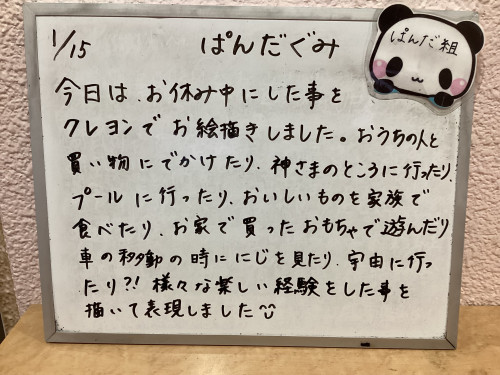 1/15 ぱんだぐみ
ぱんだ組
今日は、お休み中にした事を
クレヨンでお絵描きしました。おうちの人と
買い物にでかけたり、神さまのところに行ったり、
プールに行ったり、おいしいものを家族で
食べたり、お家で買ったおもちゃで遊んだり
車の移動の時ににじを見たり、宇宙に行っ
たり?! 様々な楽しい経験をした事を
描いて表現しました